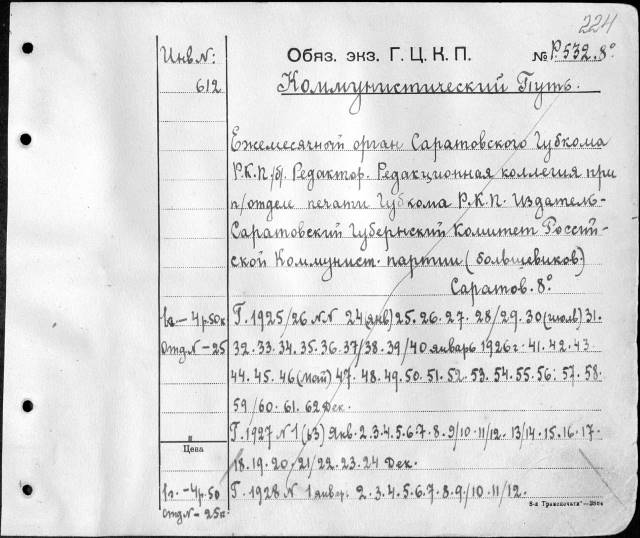 224
Инв. N:
612
Обяз. экз. Г. Ц. К. П.
№ Р.532.8°
Коммунистический Путь.
Ежемесячный орган Саратовского Губкома
Р.К.П./б/. Редактор. Редакционная коллегия при
п/отделе печати Губкома Р.К.П. Издатель-
Саратовский Губернский Комитет Россий-
ской Коммунист. партии (большевиков)
Саратов. 8°
1г.-4р.50к
Отд N-25
Г. 1925/26 N N 24 (янв) 25. 26. 27. 28/29. 30 (июль) 31.
32. 33. 34. 35. 36. 37/38. 39/40 январь 1926 г. 41. 42. 43
44. 45. 46 (май) 47. 48. 49. 50. 51. 52. 53. 54. 55. 56. 57. 58.
59/60. 61. 62 Дек.
Г. 1927 N 1 (63) Янв. 2. 3. 4. 5. 6. 7. 8. 9/10. 11/12. 13/14. 15. 16. 17.
18. 19. 20. 21/22. 23. 24 Дек.
Цена
1г.-4р.50
отд N-25к
Г. 1928 N 1 январ. 2. 3. 4. 5. 6. 7. 8. 9/10. 11/12.